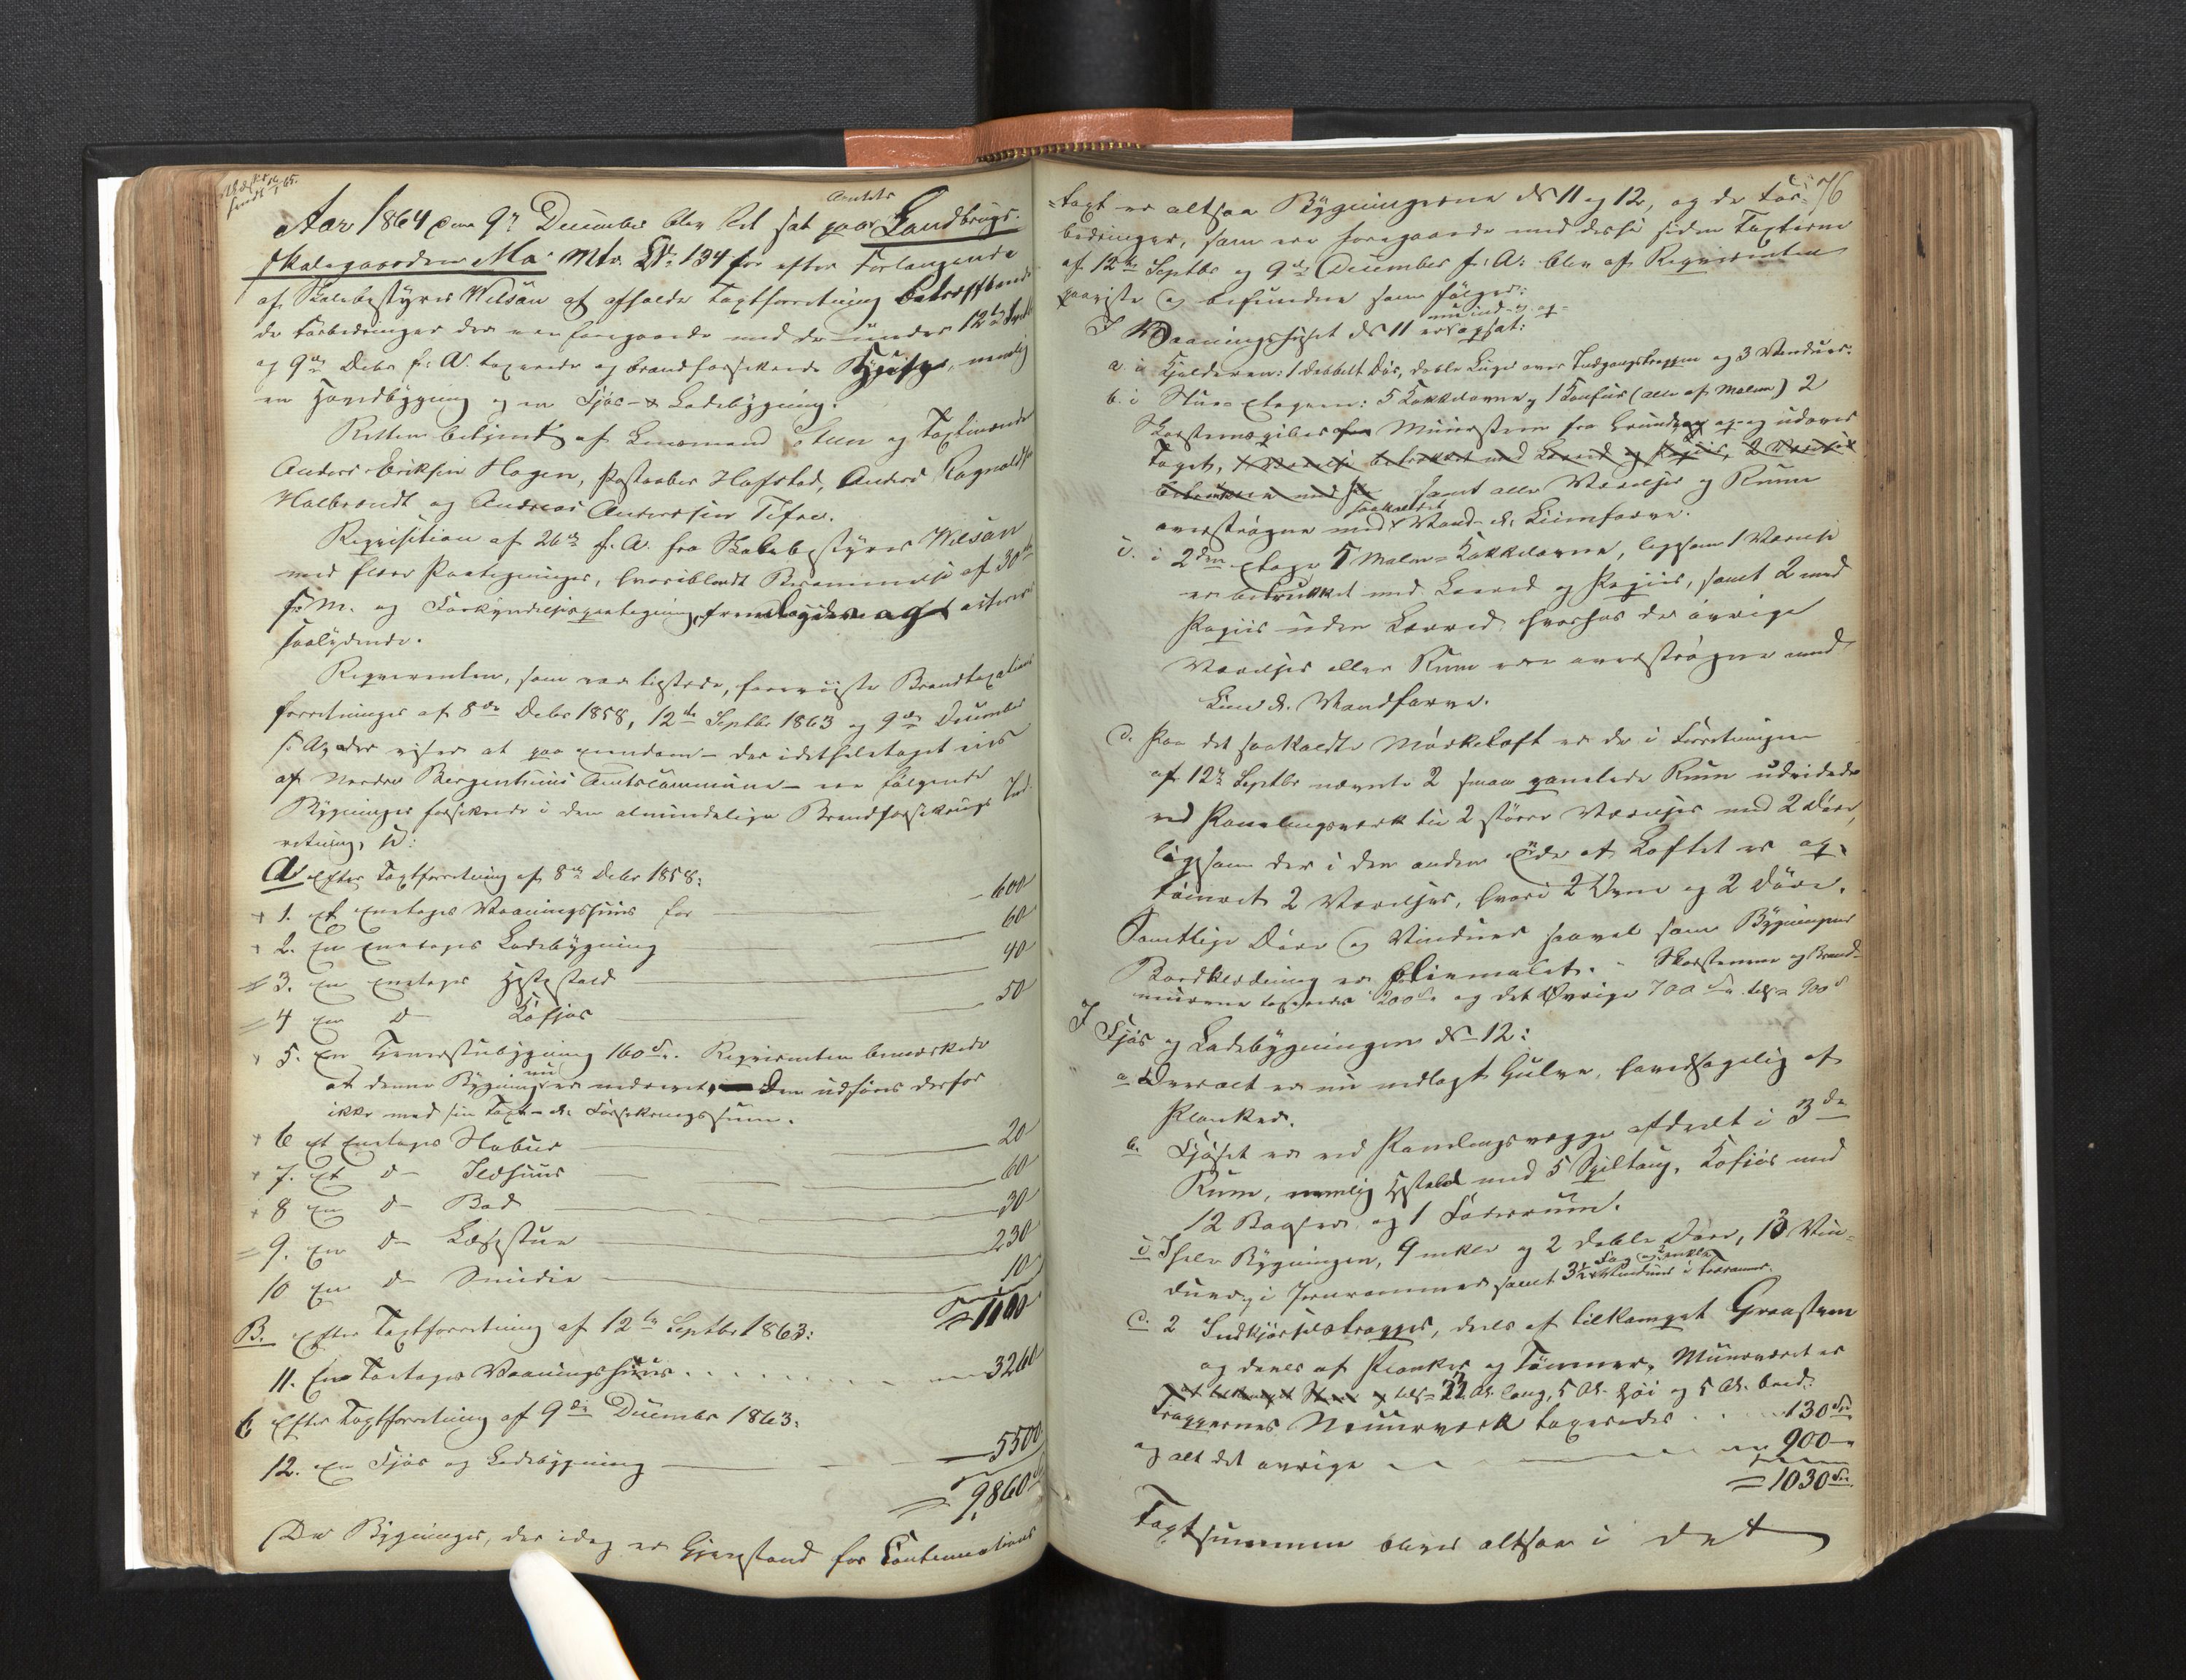 Amtets
Aar 1864 den 9de December blev Ret sat paa Landbrugs-
skolegaarden Mo Mtr. No 134 for efter Forlangende
af Skolebestyrer Wilson at afholde Taxtforretning betræffende
de Forbedringer der ere foregaaede med de under 12te Septbr
og 9de Debr f: A. taxerede og brandforsikrede Huse, nemlig
en Hovedbygning og en Fjøs- & Ladebygning.
Retten betjent af Lensmand og Taxtmænd
Anders Eriksen Hagen, Hafstad, Anders Ragnalds
Halbrændt og Andreas Anderssen Tefre.
Requisition af 26de f. A. fra Skolebestyrer Wilson
med flere Paategninger, hvoriblandt Berammelse af 30te
f: M. og Forkyndelsespaategning, fremlagdes
saalydende.
Reqvirenten, som var tilstede, foreviiste Brandtaxations
forretninger af 8de Debr 1858, 12te Septbr 1863 og 9de December
f: A., der viser at paa Eiendom- der idetheletaget eies
af Nordre Bergenhuus Amtscommune- ere følgende
Bygninger forsikrede i den almindelige Brandforsikrings Ind-
retning, :
A Efter Taxtforretning af 8de Debr 1858:
1. Et Eenetages Vaaningshuus for 600
2. En Eenetages Ladebygning 60
3. En Eenetages Hestestald 40
4 En d- Kofjøs 50
5. En Tjenerstubygning 160 . Reqvirenten bemærkede
at denne Bygning nu er nedrevet, Den udføres derfor
ikke med sin Taxt- & Forsikringssum.
6 Et Eenetages Stabur 20
7. Et d- Ildhuus 60
8 En d- Bod 30
9. En d- Læsestue 230
10 En d- Smidie 10
1100
B. Efter Taxtforretning af 12te Septbr 1863:
11. En Toetages Vaaningshuus 3260
C Efter Taxtforretning af 9de December 1863:
12. En Fjøs og Ladebygning 5500
9860
De Bygninger, der idag er Gjenstand for Continuations
76
-taxt er altsaa Bygningerne No 11 og 12, og de For-
bedringer, som ere foregaaede med disse siden Taxterne
af 12te Septbr og 9de December f: A: blev af Reqvirenten
paaviste og befundne som følger:
I Vaaningshuset No 11 er opsat:
a. i Kjælderen: 1 dobbelt Dør, doble Luger over Indgangstrappen og 3 Vinduer.
b. i Stue-Etagen: 5 Kakkelovne og 1 Komfur (alle af Malm) 2
Skorsteenspiber Muursteen fra Grunden op og udover
Taget, 1 Værelse betrukket med Lærred og Papiir, 2 Værelser
betrukne med samt alle Værelser og Rum
overstrøgne med saakaldet Vand- & Liimfarve.
c. i 2den Etage 5 Malm-Kakkelovne, ligesom 1 Værelse
er betrukket med Lærred og Papiir, samt 2 med
Papiir uden Lærred hvorhos de øvrige
Værelser eller Rum ere overstrøgne med
Liim & Vandfarve.
d. Paa det saakaldte Mørkeloft er de i Forretningen
af 12te Septbr nævnte 2 smaa panelede Rum udvidede
ved Panelingsværk til 2 større Værelser med 2 Døre,
ligesom der i den anden Ende af Loftet er op-
tømret 2 Værelser, hvori 2 Ovne og 2 Døre.
Samtlige Døre og Vinduer saavel som Bygningens
Bordklædning er oliemalet. - Skorstenene og Brand-
murene taxeredes 200 og det Øvrige 700 tils= 900
I Fjøs og Ladebygningen No 12:
a Overalt er nu nedlagt Gulve, hovedsagelig af
Planker.
b. Fjøset er ved Panelingsvægge afdeelt i 3de
Rum, nemlig Hestald med 5 Spiltaug, Kofjøs med
12 Baaser, og 1 Foderrum.
c I hele Bygningen, 9 enkle og 2 doble Døre, 13 Vin-
duer i Jernrammer samt 3½ Fag og 2 enkle Vinduer i Trærammer.
d. 2 Indkjørselstrapper, deels af tilkampet Graasteen
og deels af Planker og Tømmer. Muurværket er
22 Al. lang, 5 Al. høi og 5 Al. bred.
Trappernes Muurværk taxeredes 130
og alt det øvrige 900
= 1030
Taxtsummen bliver altsaa i det